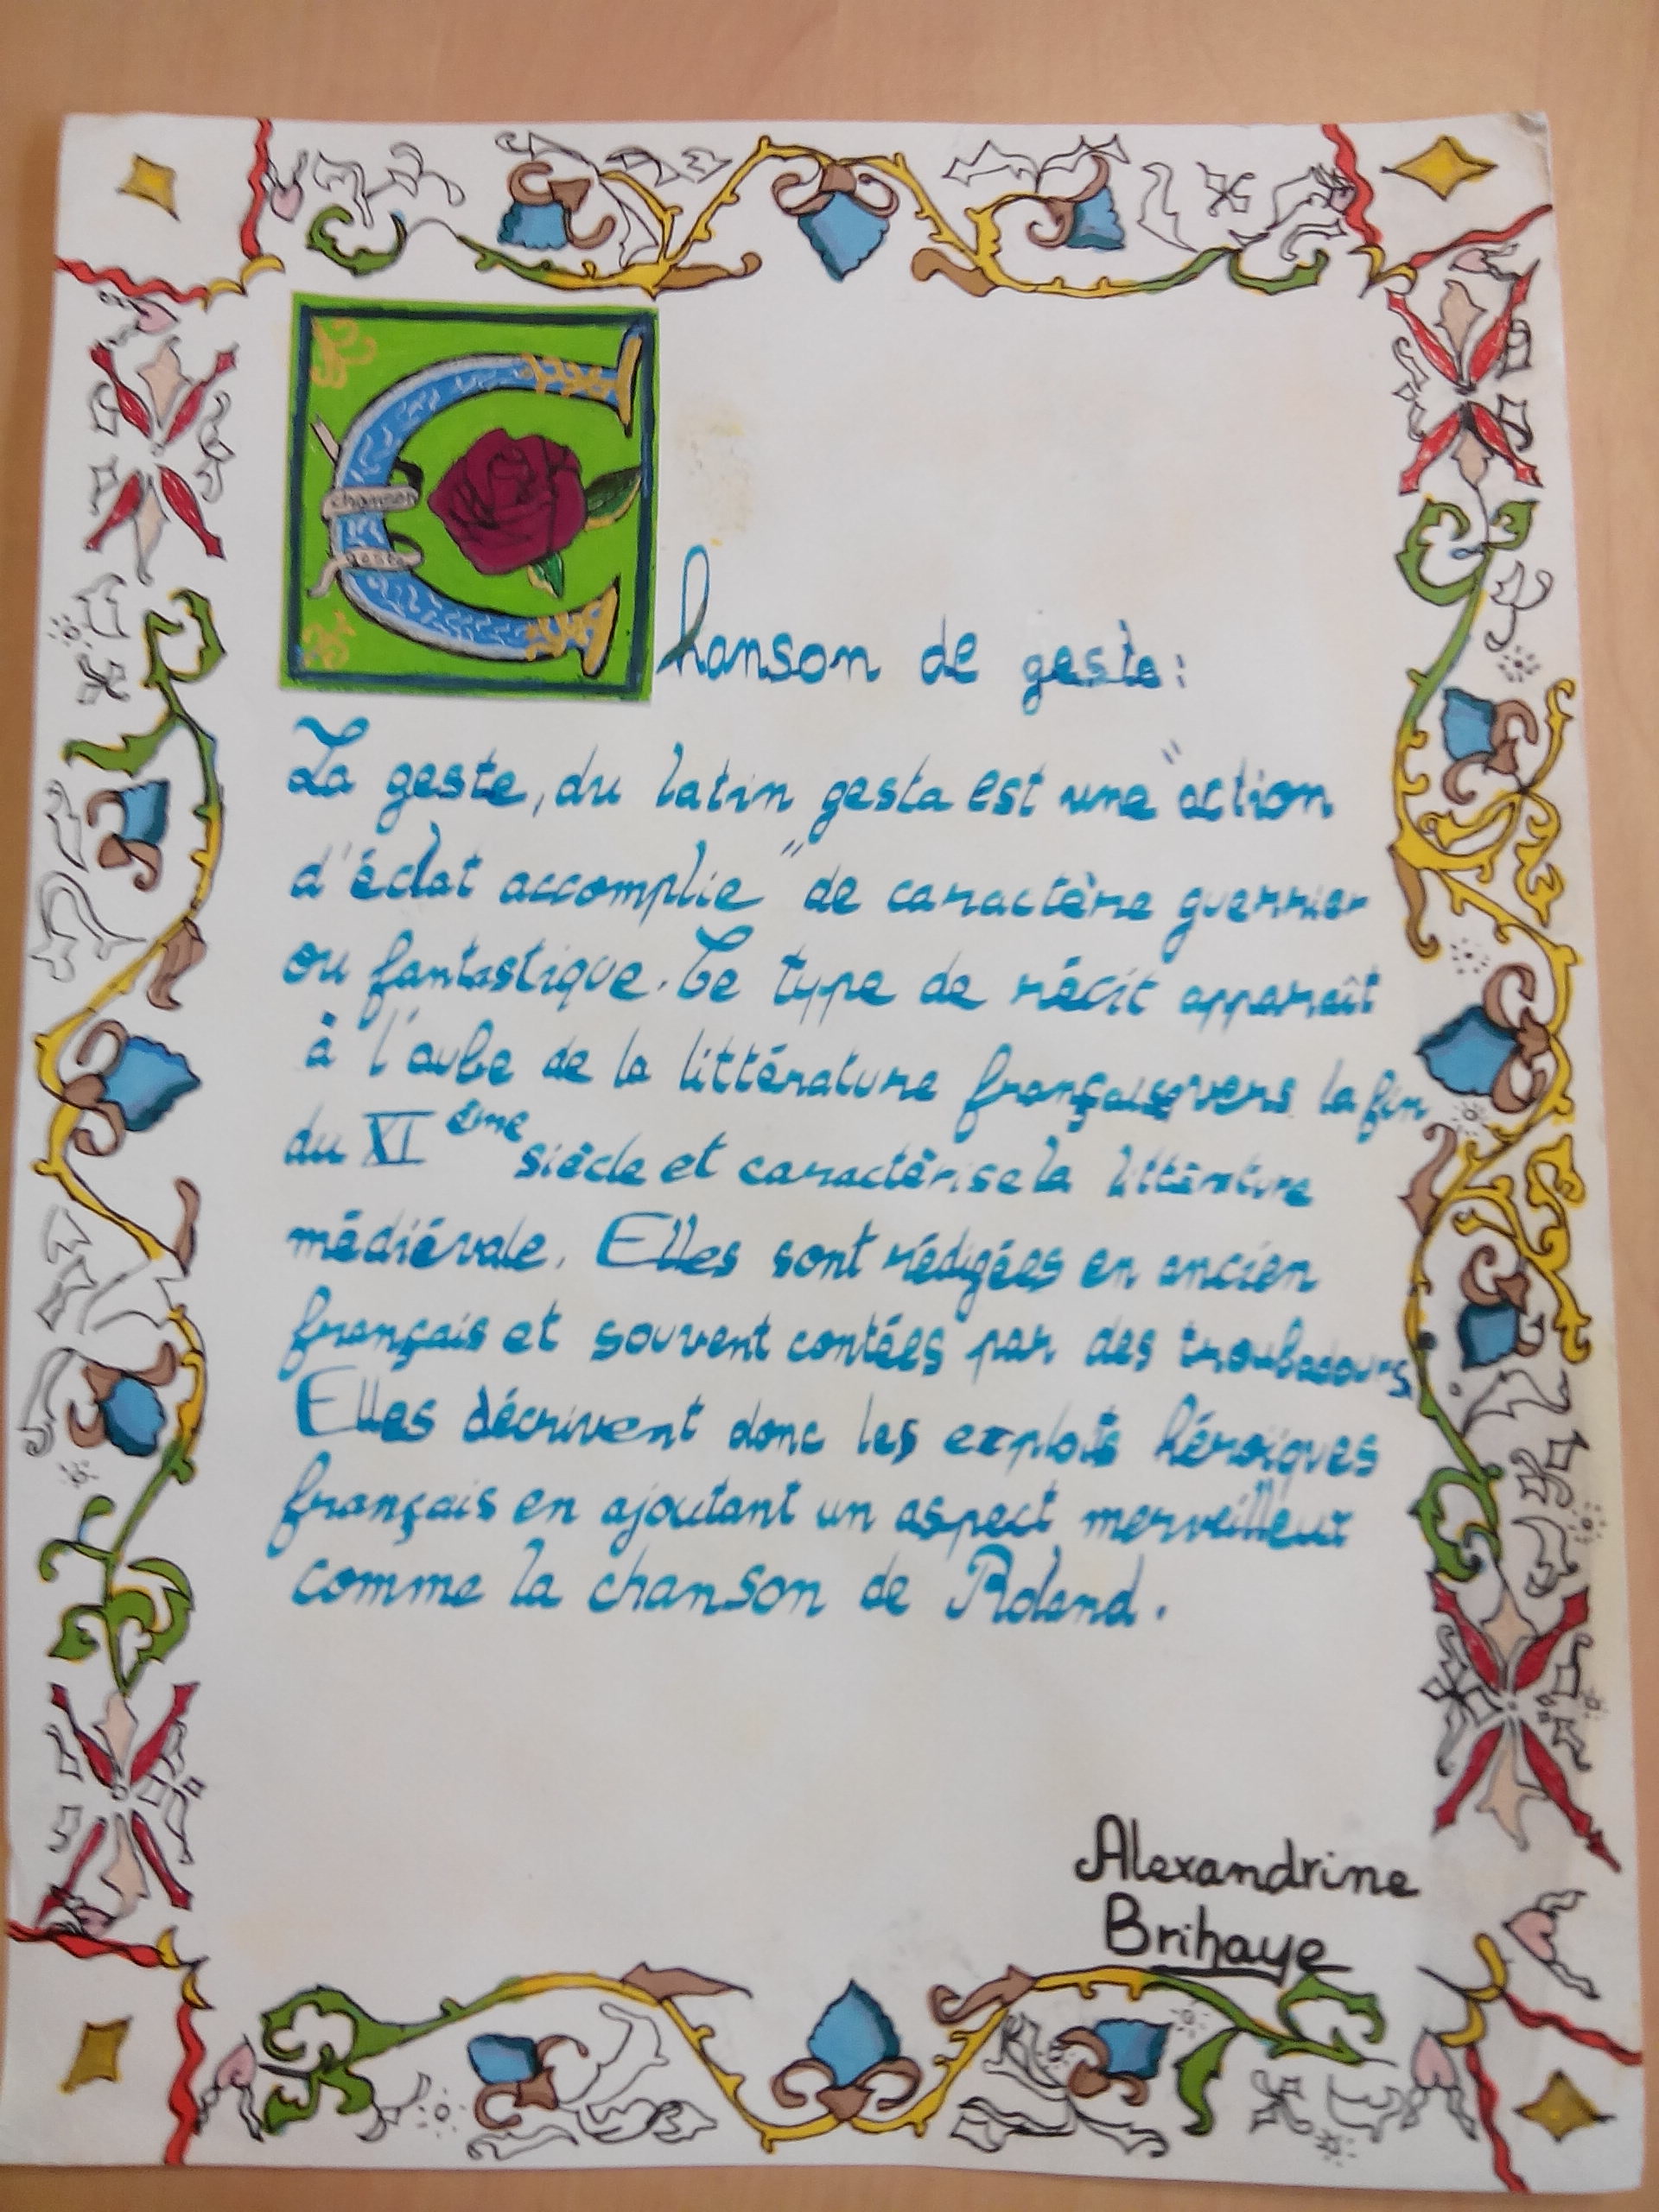 chanson
geste
Chanson de geste :
La geste, du latin gesta est une "action
d'éclat accomplie" de caractère guerrier
ou fantastique. Ce type de récit apparaît
à l'aube de la littérature française vers la fin
du XIème siècle et caractérise la littérature
médiévale. Elles sont rédigées en ancien
français et souvent contées par des troubadours.
Elles décrivent donc les exploits héroïques
français en ajoutant un aspect merveilleux
comme la chanson de Roland.
Alexandrine
Brihaye